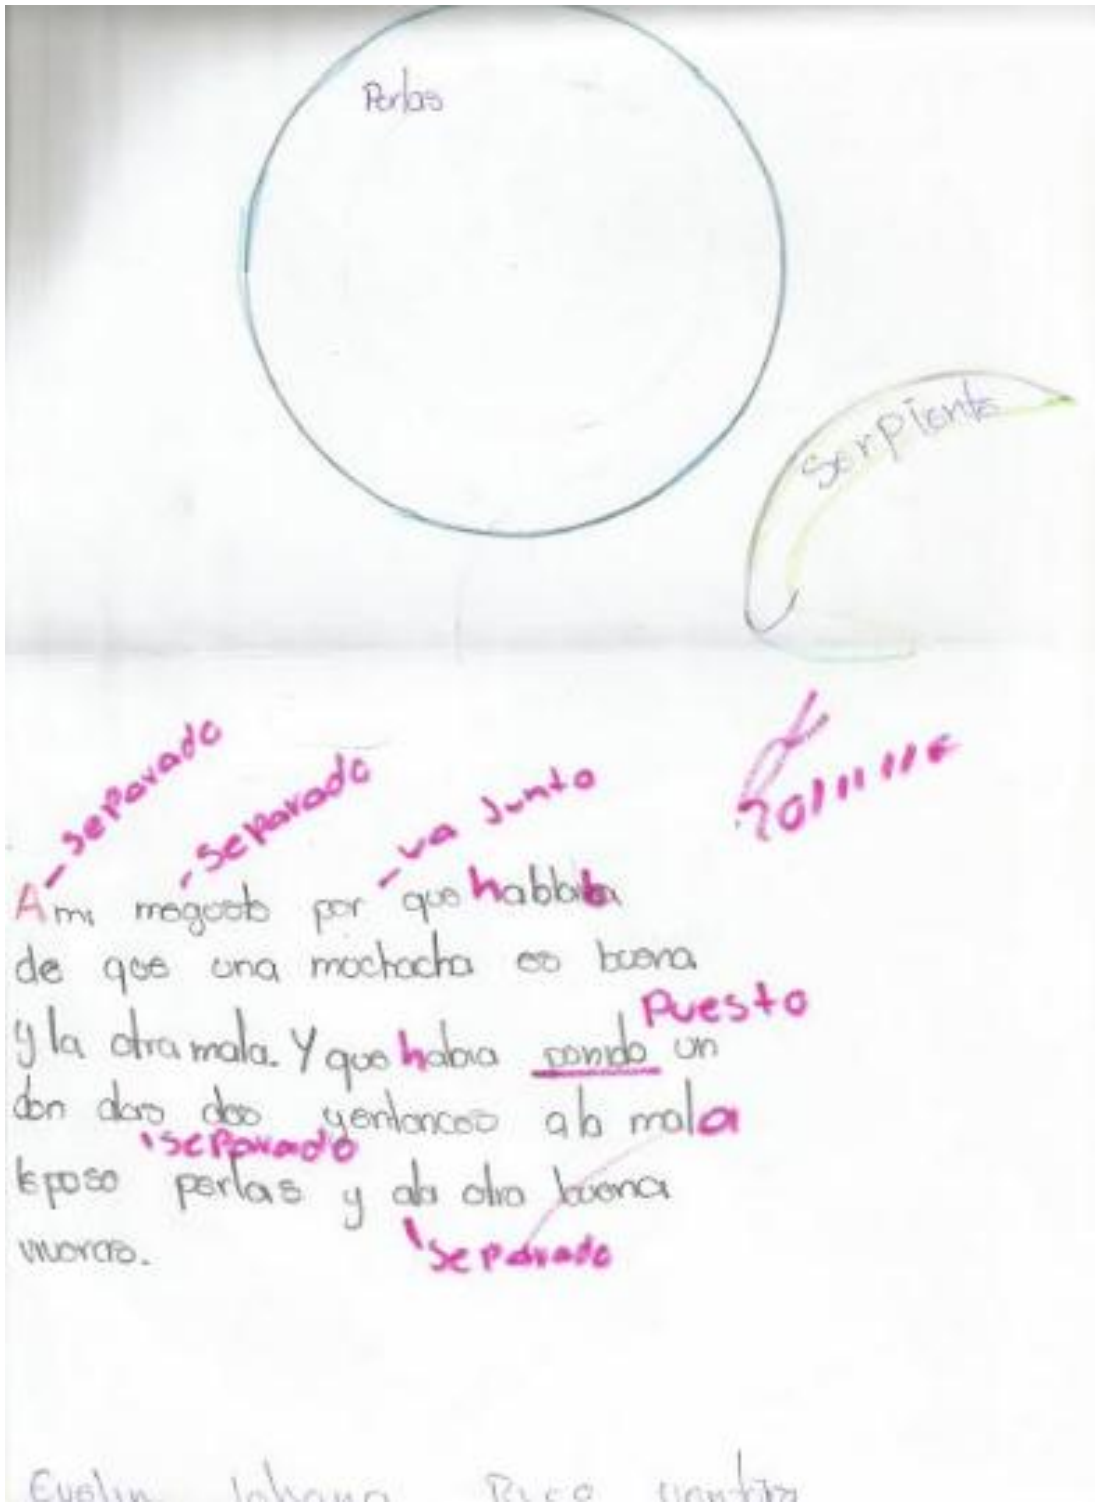 Perlas
Serpiente
separado
separado
va junto
Ami megusto por que hablaba
de que una muchacha es buena
Puesto
y la otra mala. Y que habia ponido un
don das dos yentonces ala mala
separado
lepuso perlas y ala otra buena
vivoras.
separado
Evelin Johana Rico